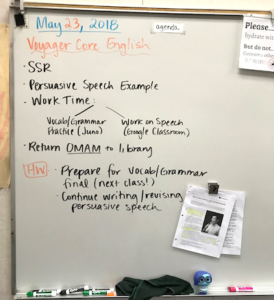 May 23, 2018
agenda
Voyager Core English
• SSR
• Persuasive Speech Example
• Work Time:
Vocab/Grammar
Practice (Juno)
Work on Speech
(Google Classroom)
• Return OMAM to library
HW • Prepare for Vocab/Grammar
final (next class!)
• Continue writing/revising
persuasive speech
Please
hydrate
But do not